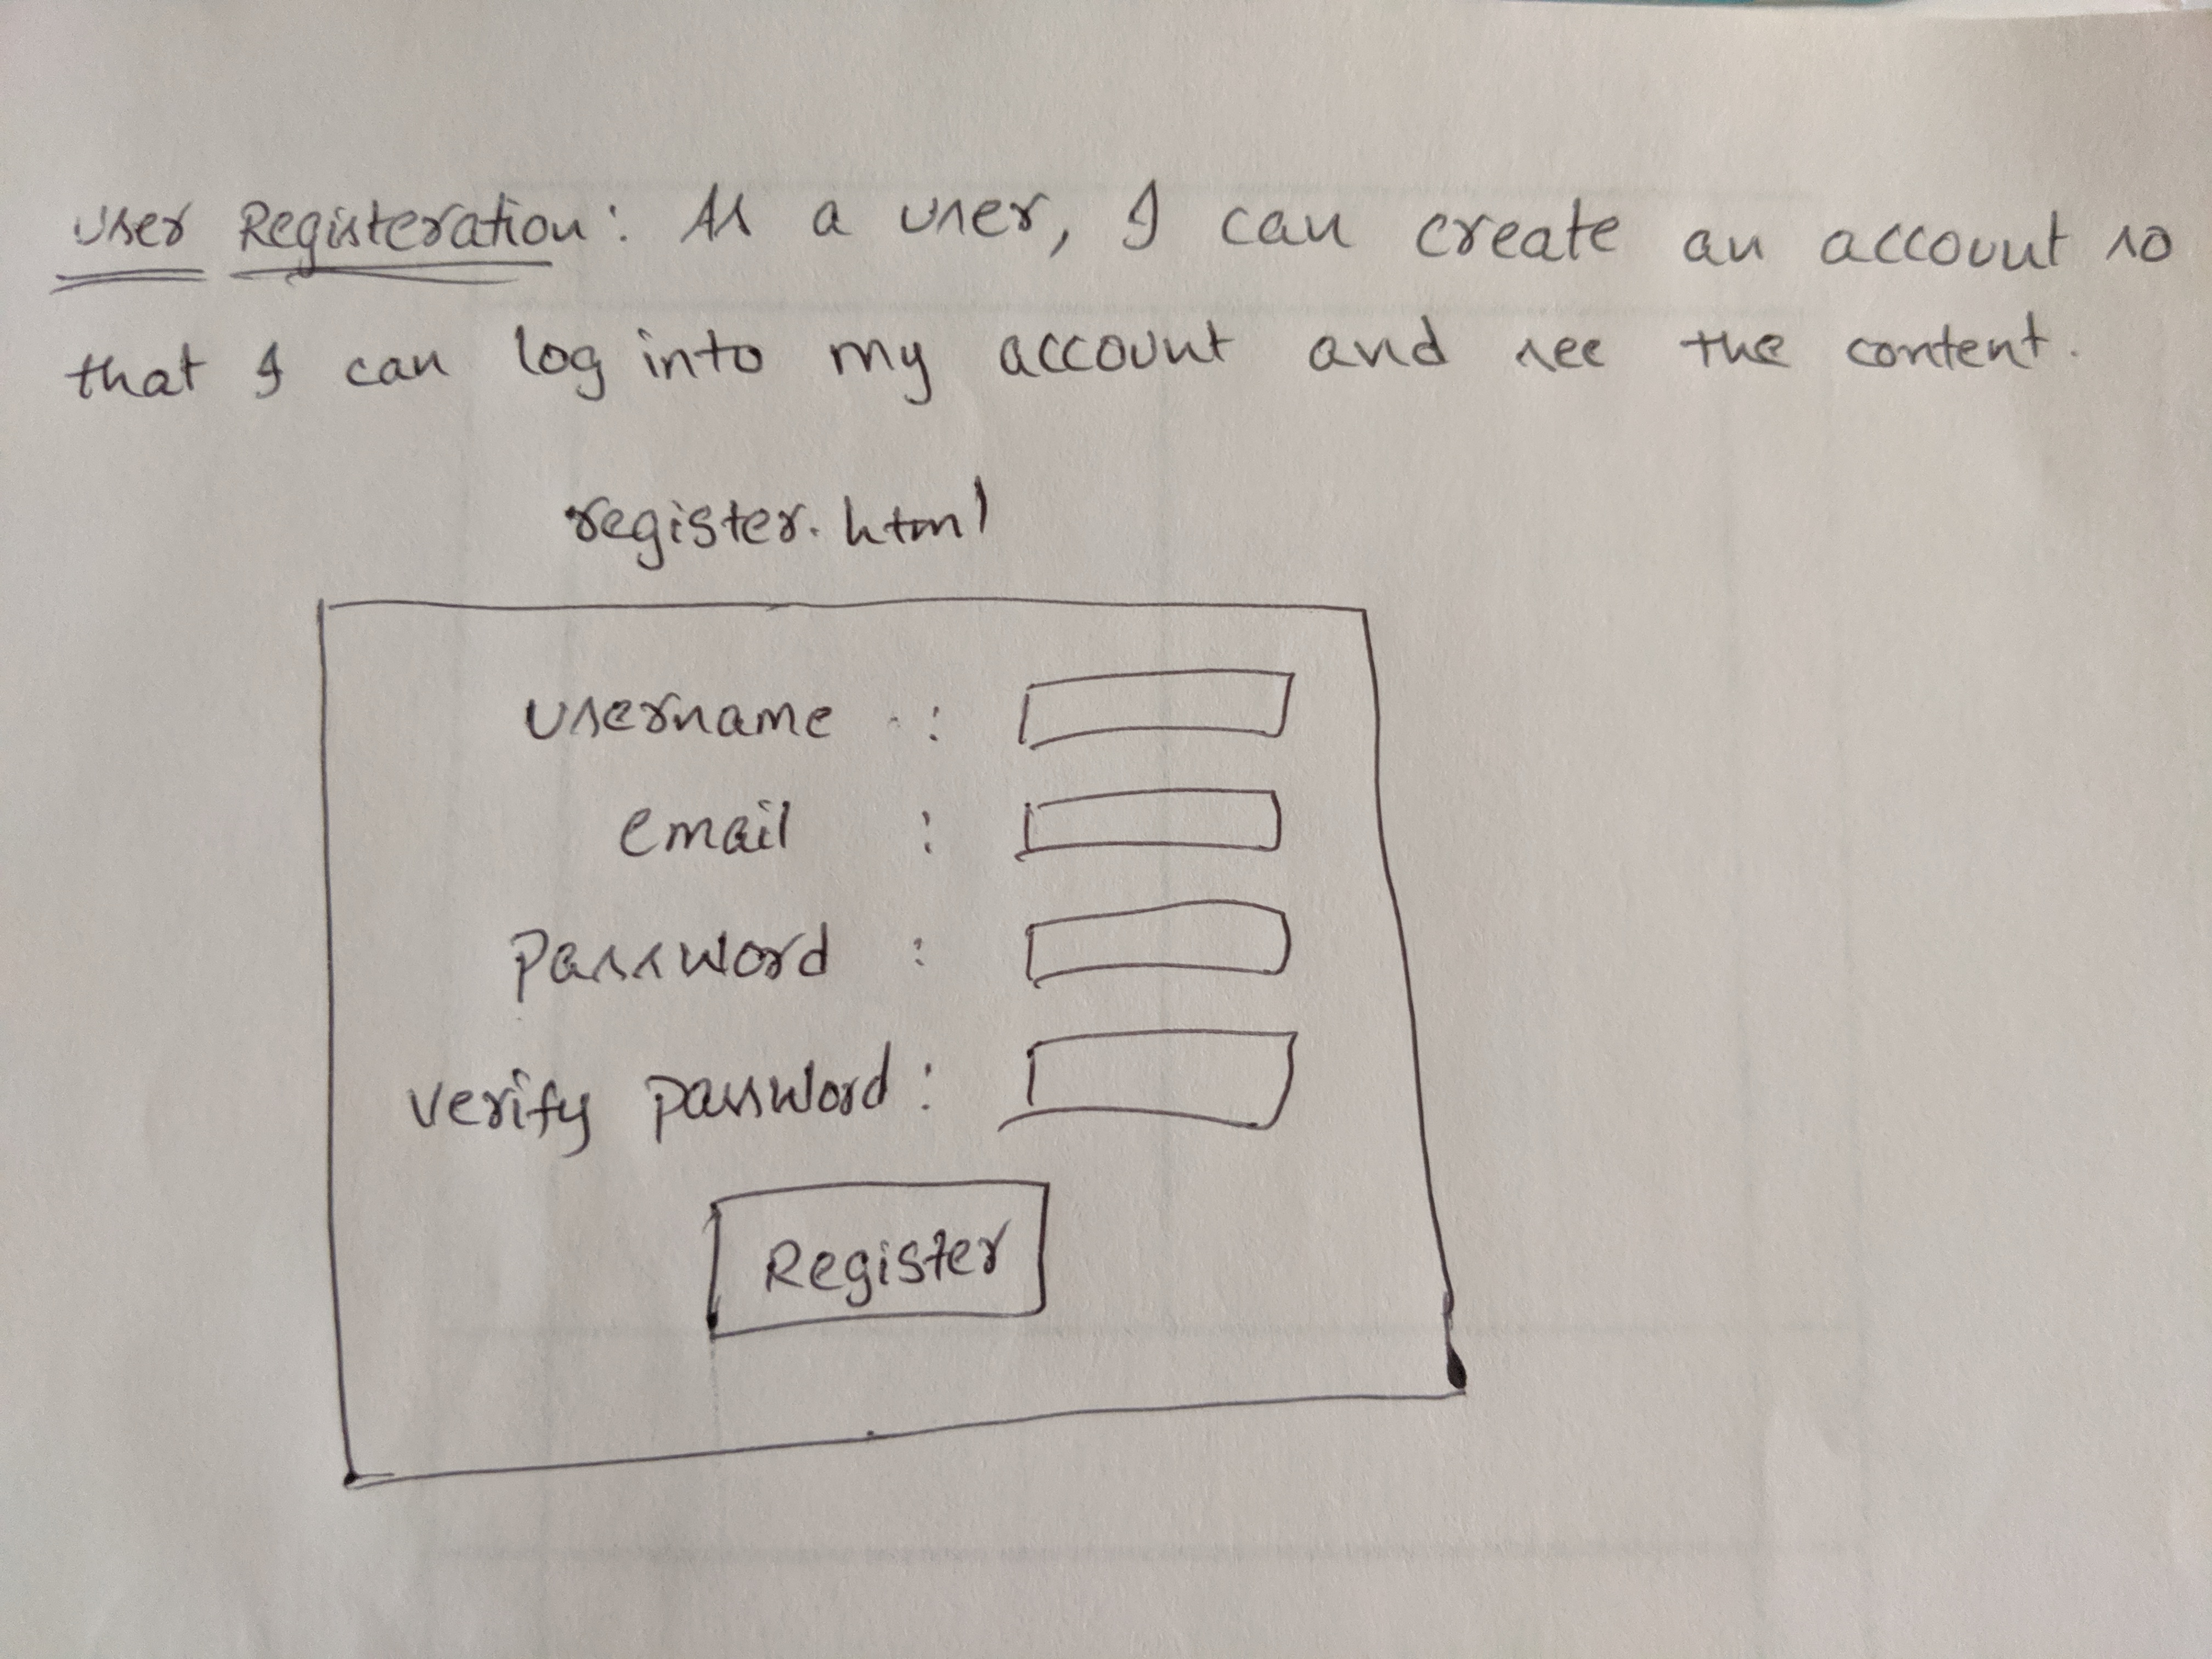 User Registeration: As a user, I can create an account so
that I can log into my account and see the content.
register.html
username :
email :
password :
verify password :
Register